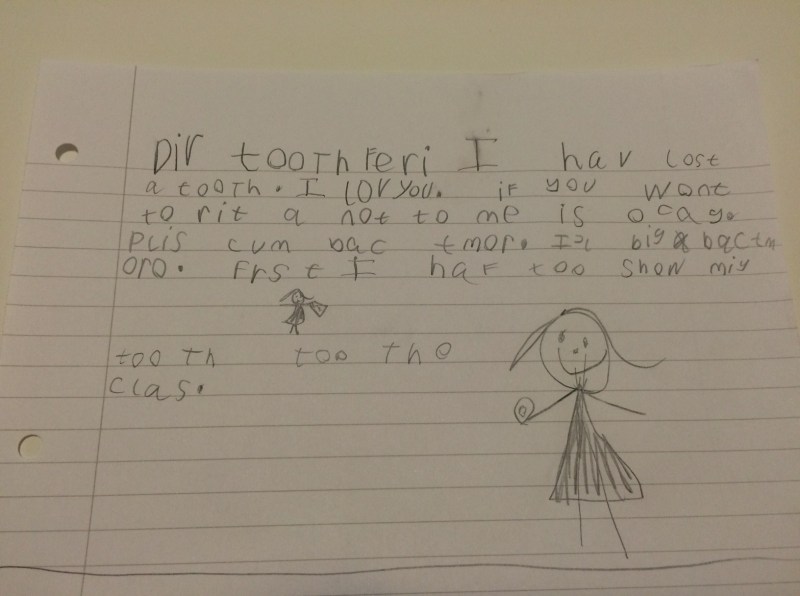 Dir toothferi I hav lost
a tooth. I lov you. if you wont
to rit a not to me is ocay.
Plis cum bac tmor. Il big bac tm
oro. Frst I haf too show miy
tooth too the
clas.